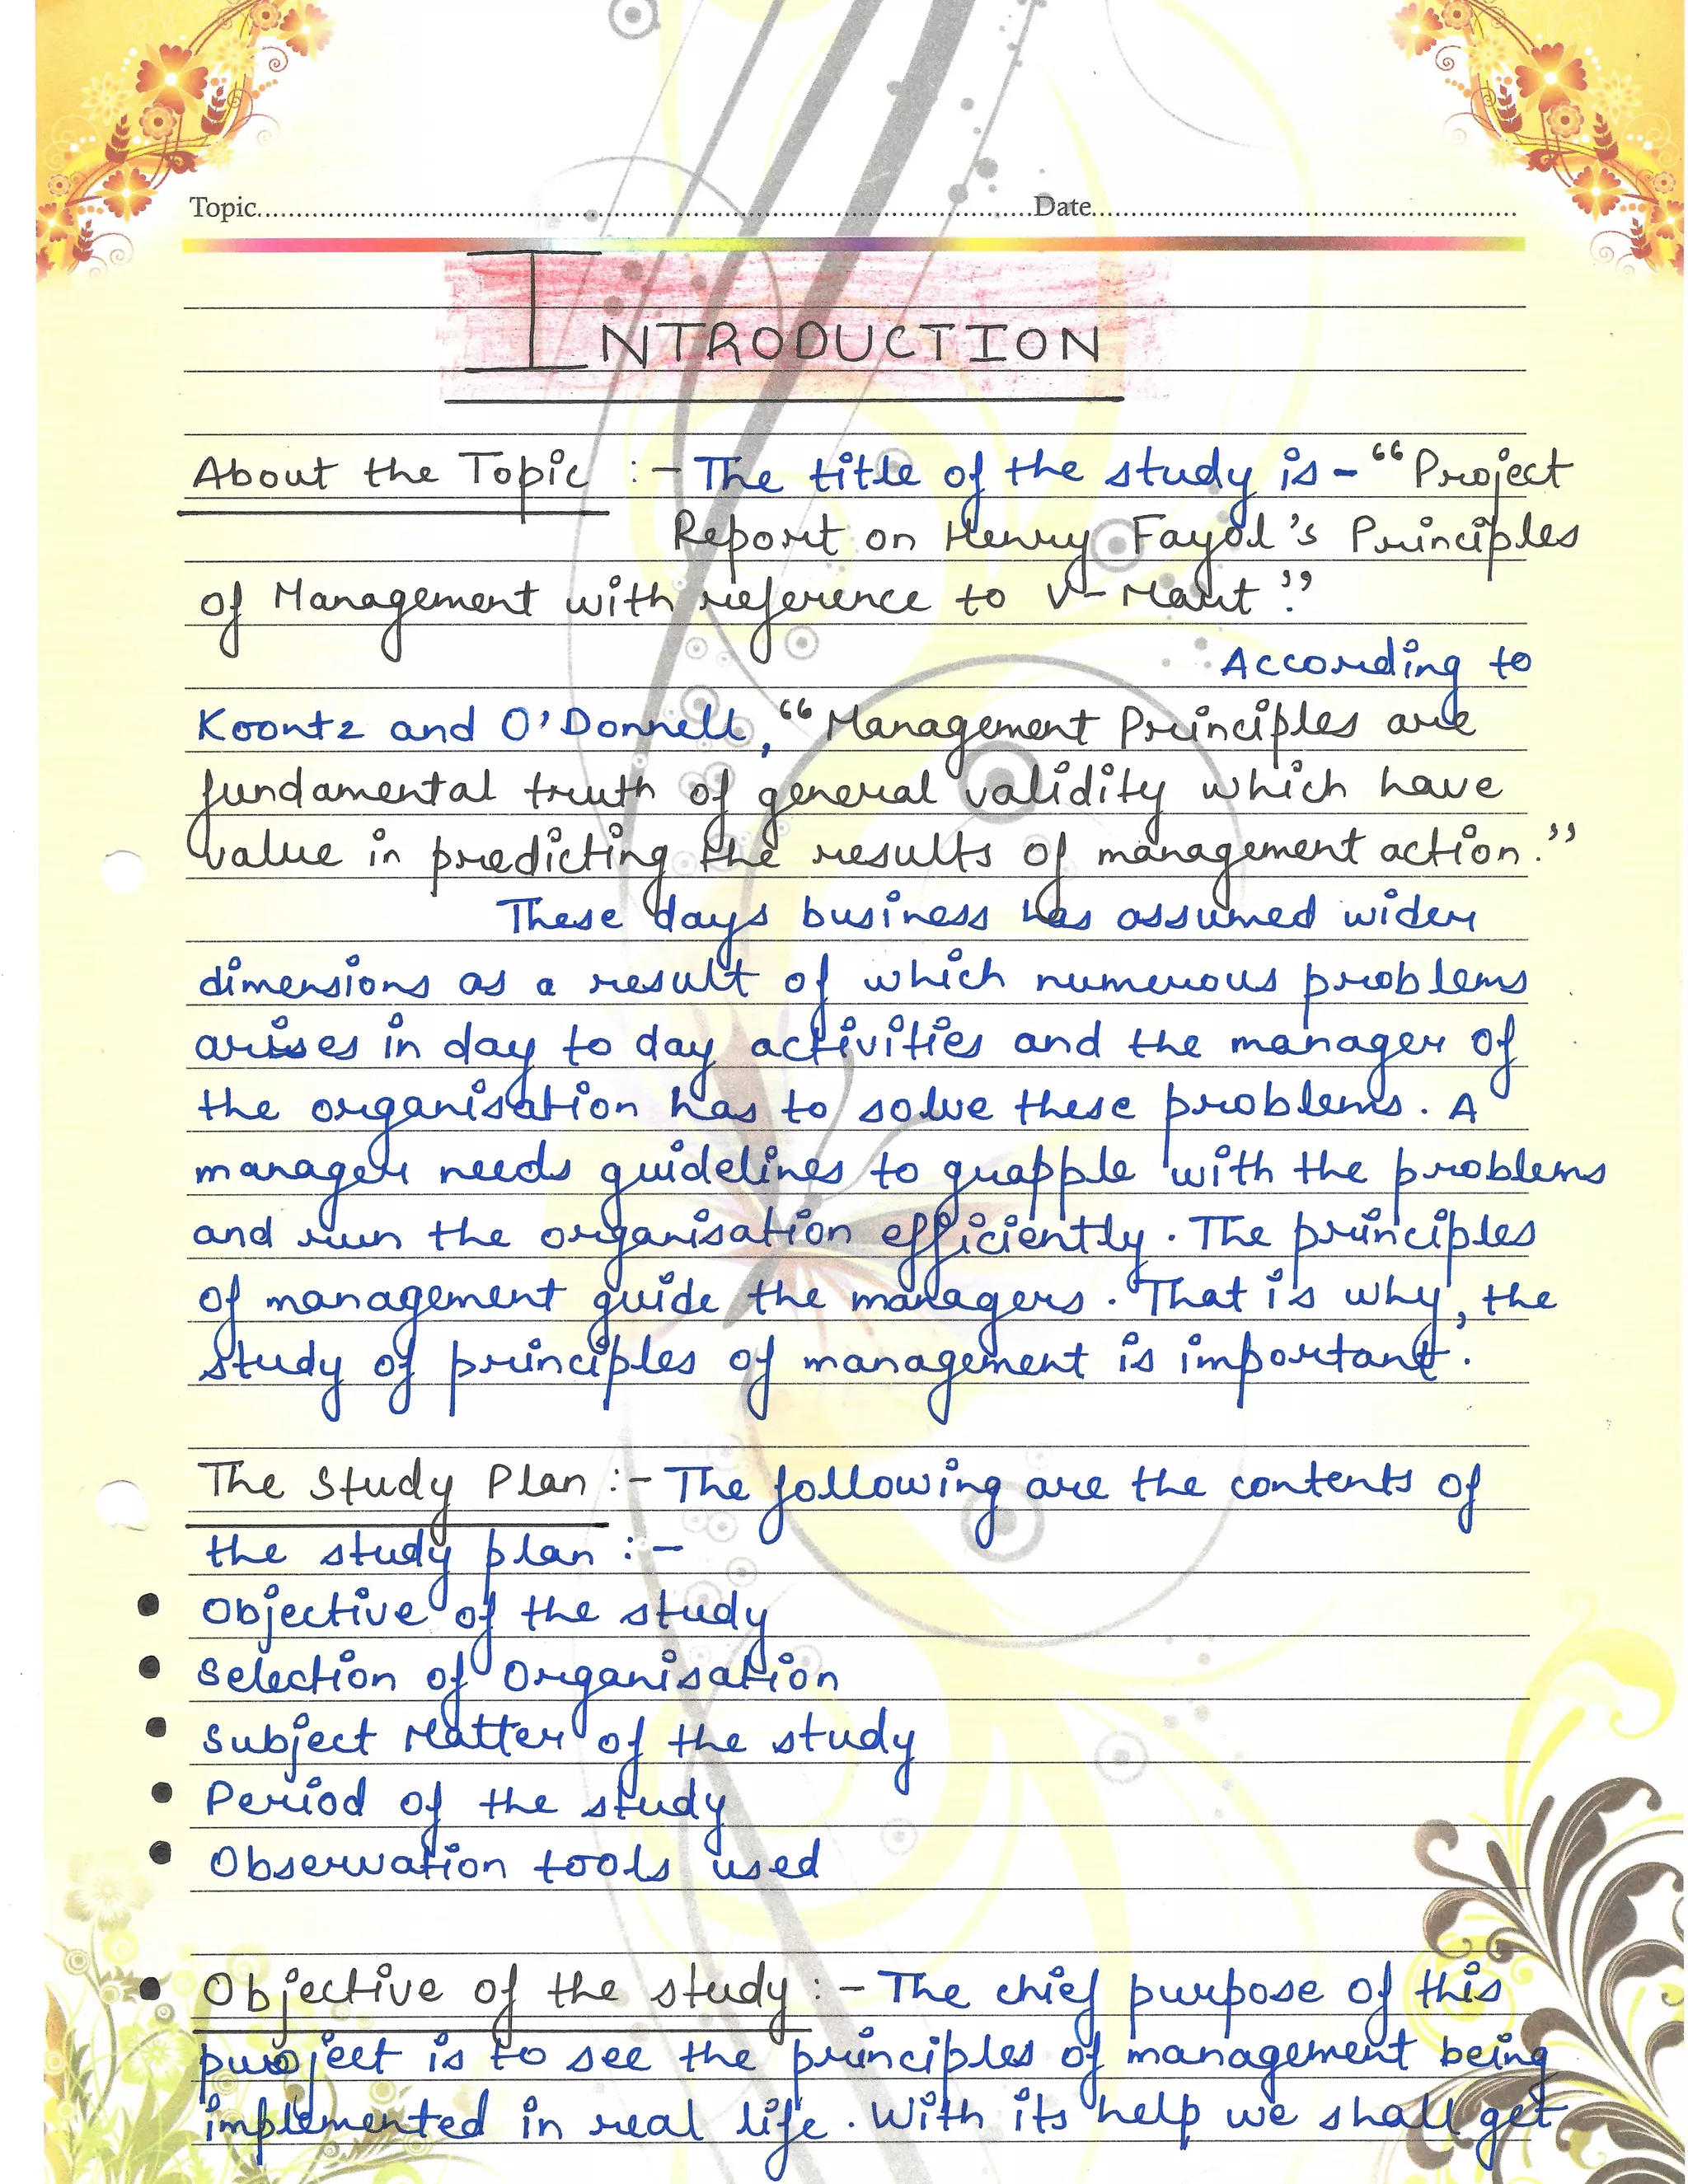 Topic..........Date..........
INTRODUCTION
About the Topic :- The title of the study is - "Project
Report on Henry Fayol's Principles
of Management with reference to V-Mart".
According to
Koontz and O'Donnell, "Management Principles are
fundamental truth of general validity which have
value in predicting the results of management action."
These days business has assumed wider
dimensions as a result of which numerous problems
arises in day to day activities and the manager of
the organisation has to solve these problems. A
manager needs guidelines to grapple with the problems
and run the organisation efficiently. The principles
of management guide the managers. That is why, the
study of principles of management is important.
The Study Plan :- The following are the contents of
the study plan :-
• Objective of the study
• Selection of Organisation
• Subject Matter of the study
• Period of the study
• Observation tools used
• Objective of the study :- The chief purpose of this
project is to see the principles of management being
implemented in real life. With its help we shall get